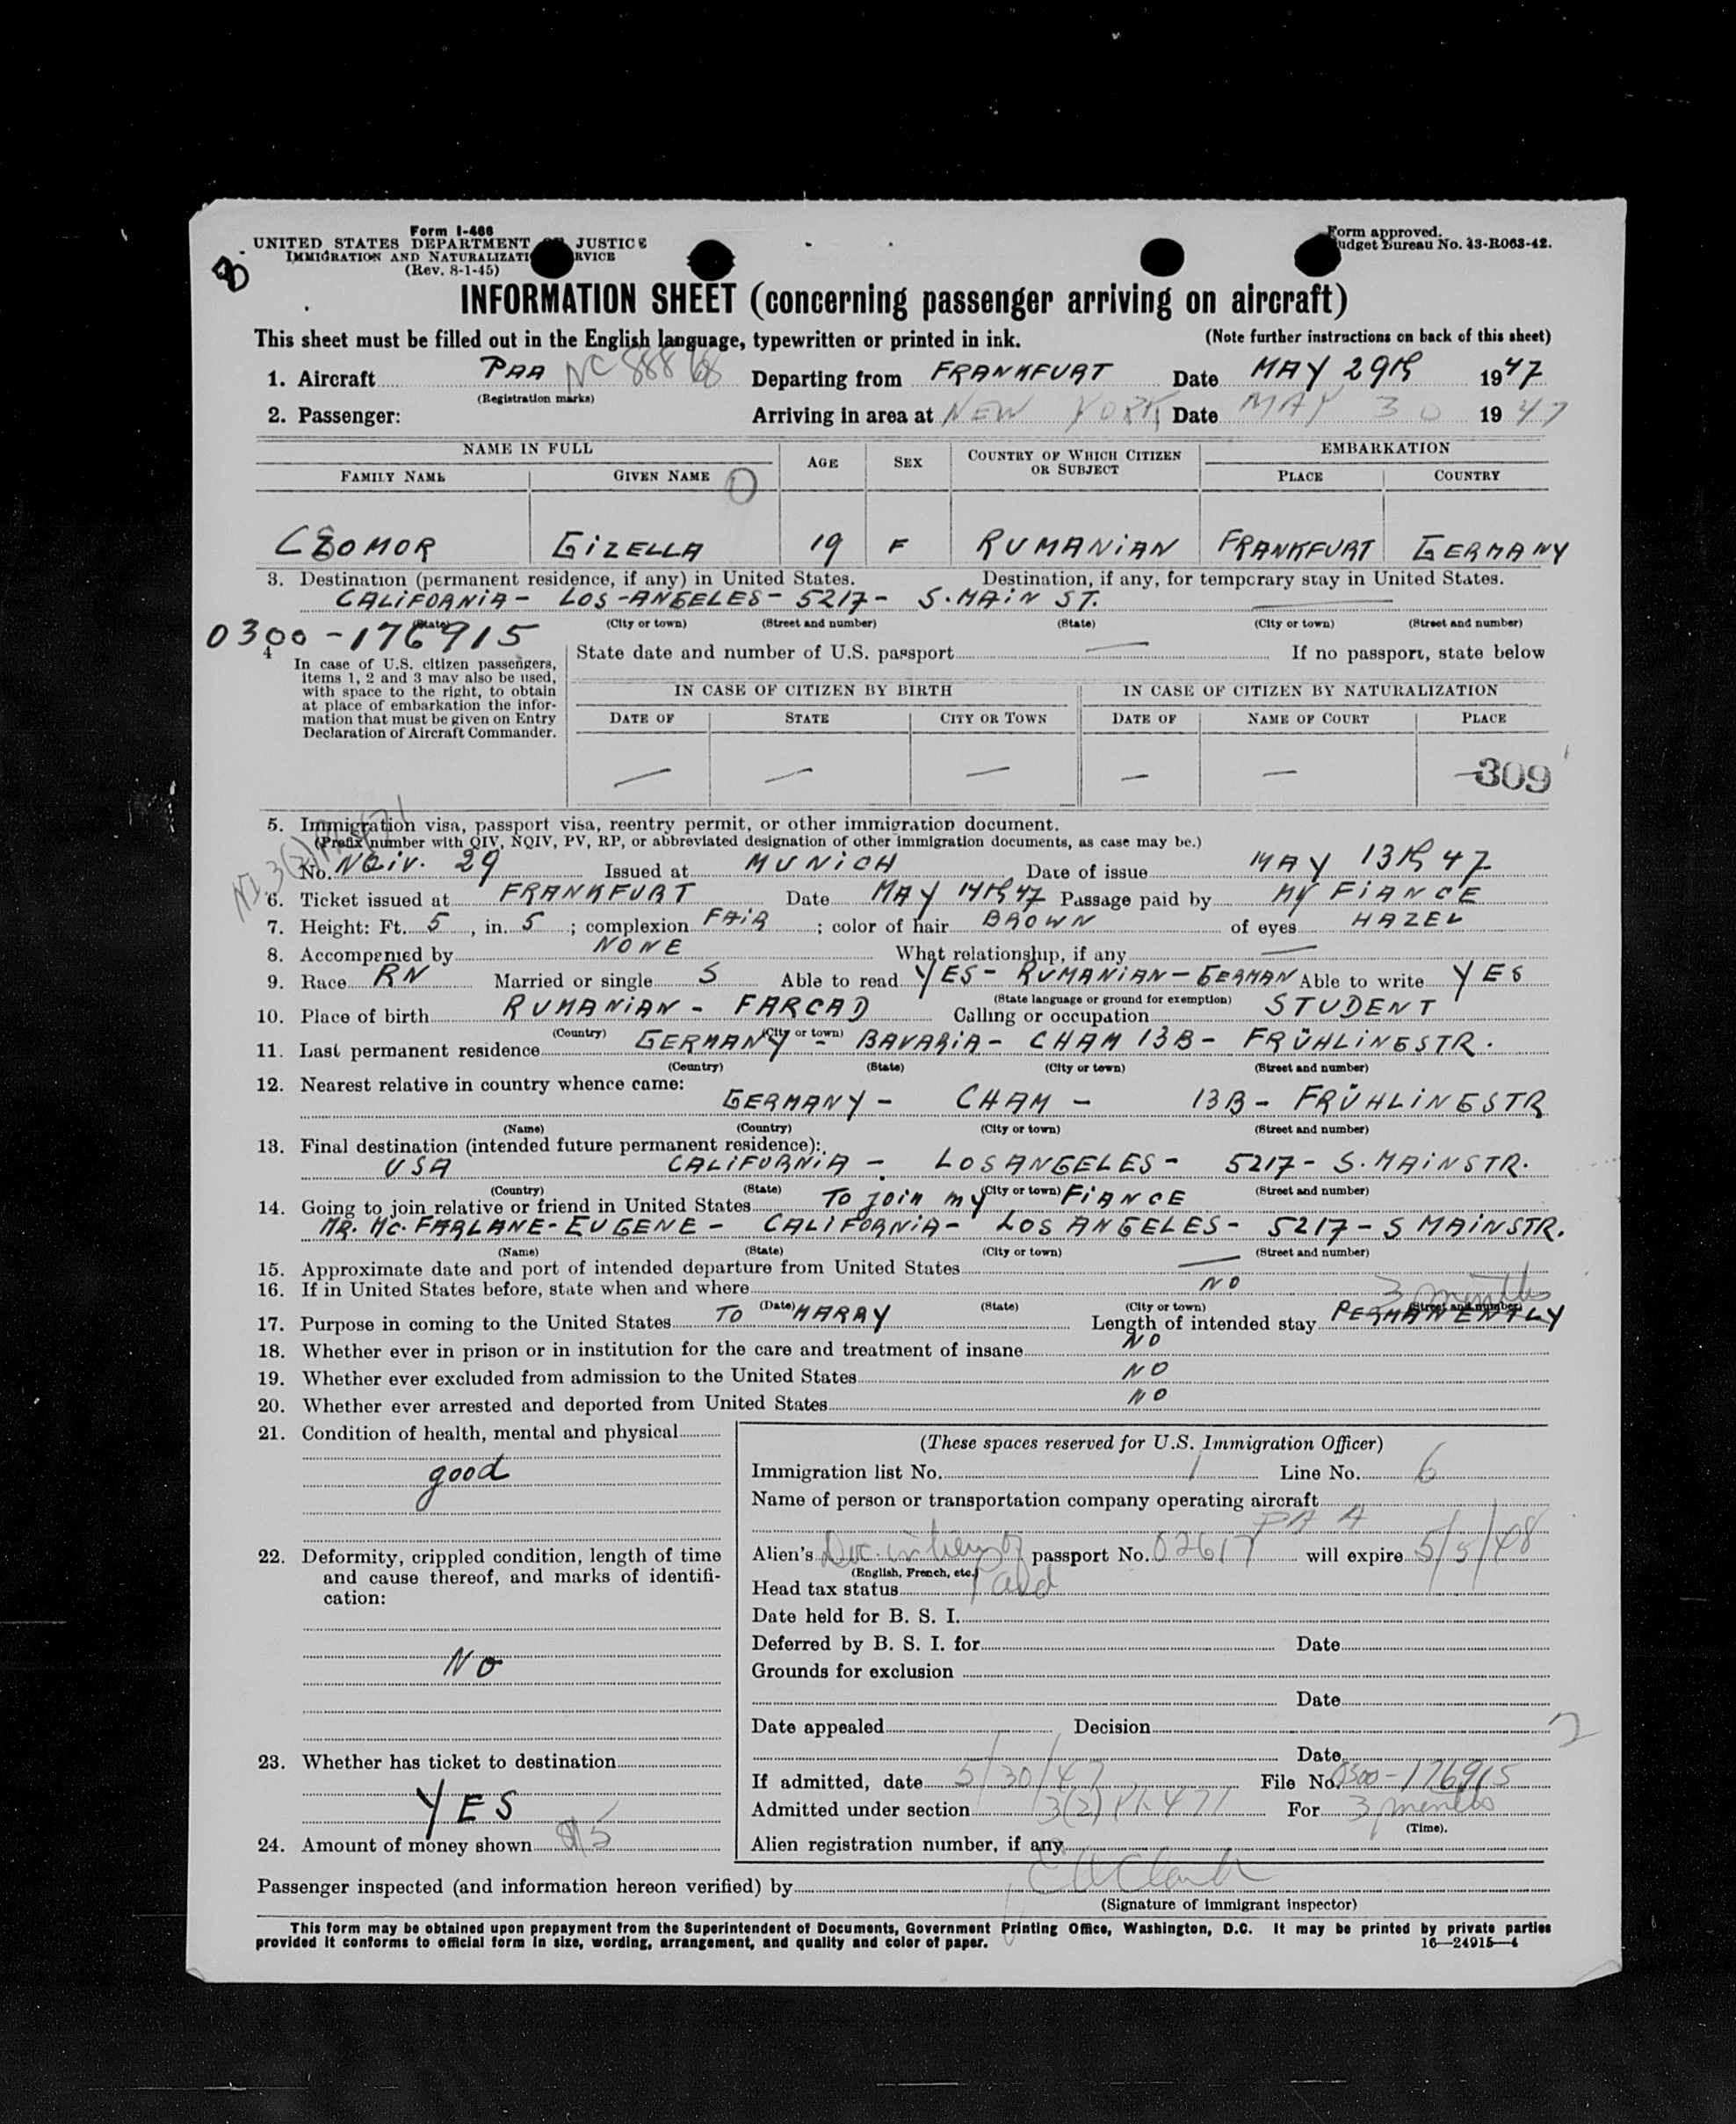 Form I-466
UNITED STATES DEPARTMENT JUSTICE
IMMIGRATION AND NATURALIZATI RVICE
(Rev. 8-1-45)
Form approved.
udget Bureau No. 43-R063-42.
INFORMATION SHEET (concerning passenger arriving on aircraft)
This sheet must be filled out in the English language, typewritten or printed in ink. (Note further instructions on back of this sheet)
1. Aircraft PAA NC 88868 Departing from FRANKFURT Date MAY 29th 1947
(Registration marks)
2. Passenger: Arriving in area at NEW YORK Date MAY 30 1947
NAME IN FULL AGE SEX COUNTRY OF WHICH CITIZEN OR SUBJECT EMBARKATION
FAMILY NAME GIVEN NAME PLACE COUNTRY
GIZELLA 19 F RUMANIAN FRANKFURT GERMANY
3. Destination (permanent residence, if any) in United States. Destination, if any, for temporary stay in United States.
CALIFORNIA - LOS-ANGELES - 5217 - S. MAIN ST. —
(State) (City or town) (Street and number) (State) (City or town) (Street and number)
0300-176915
4
In case of U.S. citizen passengers, items 1, 2 and 3 may also be used, with space to the right, to obtain at place of embarkation the information that must be given on Entry Declaration of Aircraft Commander.
State date and number of U.S. passport — If no passport, state below
IN CASE OF CITIZEN BY BIRTH IN CASE OF CITIZEN BY NATURALIZATION
DATE OF STATE CITY OR TOWN DATE OF NAME OF COURT PLACE
— — — — — 309
5. Immigration visa, passport visa, reentry permit, or other immigration document.
(Prefix number with QIV, NQIV, PV, RP, or abbreviated designation of other immigration documents, as case may be.)
No. NQIV. 29 Issued at MUNICH Date of issue MAY 13th 47
6. Ticket issued at FRANKFURT Date MAY 14th 47 Passage paid by MY FIANCE
7. Height: Ft. 5, in. 5; complexion FAIR; color of hair BROWN of eyes HAZEL
8. Accompenied by NONE What relationship, if any —
9. Race RN Married or single S Able to read YES - RUMANIAN - GERMAN Able to write YES
(State language or ground for exemption)
10. Place of birth RUMANIAN - FARCAD Calling or occupation STUDENT
(Country) (City or town)
11. Last permanent residence GERMANY - BAVARIA - CHAM 13B - FRÜHLINGSTR.
(Country) (State) (City or town) (Street and number)
12. Nearest relative in country whence came:
GERMANY - CHAM - 13B - FRÜHLINGSTR
(Name) (Country) (City or town) (Street and number)
13. Final destination (intended future permanent residence):
USA CALIFORNIA - LOSANGELES - 5217 - S. MAINSTR.
(Country) (State) (City or town) (Street and number)
14. Going to join relative or friend in United States TO JOIN MY FIANCE
MR. MC. FARLANE - EUGENE - CALIFORNIA - LOS ANGELES - 5217 - S MAINSTR.
(Name) (State) (City or town) (Street and number)
15. Approximate date and port of intended departure from United States —
16. If in United States before, state when and where NO
(Date) (State) (City or town) (Street and number)
3 months
17. Purpose in coming to the United States TO MARRY Length of intended stay PERMANENTLY
18. Whether ever in prison or in institution for the care and treatment of insane NO
19. Whether ever excluded from admission to the United States NO
20. Whether ever arrested and deported from United States NO
21. Condition of health, mental and physical
good
22. Deformity, crippled condition, length of time and cause thereof, and marks of identification:
NO
23. Whether has ticket to destination
YES
24. Amount of money shown
(These spaces reserved for U.S. Immigration Officer)
Immigration list No. 1 Line No. 6
Name of person or transportation company operating aircraft
PAA
Alien's Doc. in lieu of passport No. 02617 will expire 5/5/48
(English, French, etc.)
Head tax status Paid
Date held for B. S. I.
Deferred by B. S. I. for Date
Grounds for exclusion
Date
Date appealed Decision 2
Date
If admitted, date 5/30/47 File No. 0300-176915
Admitted under section 3(2) PL 471 For 3 months
(Time).
Alien registration number, if any
Passenger inspected (and information hereon verified) by
(Signature of immigrant inspector)
This form may be obtained upon prepayment from the Superintendent of Documents, Government Printing Office, Washington, D.C. It may be printed by private parties
provided it conforms to official form in size, wording, arrangement, and quality and color of paper. 16—24915-4